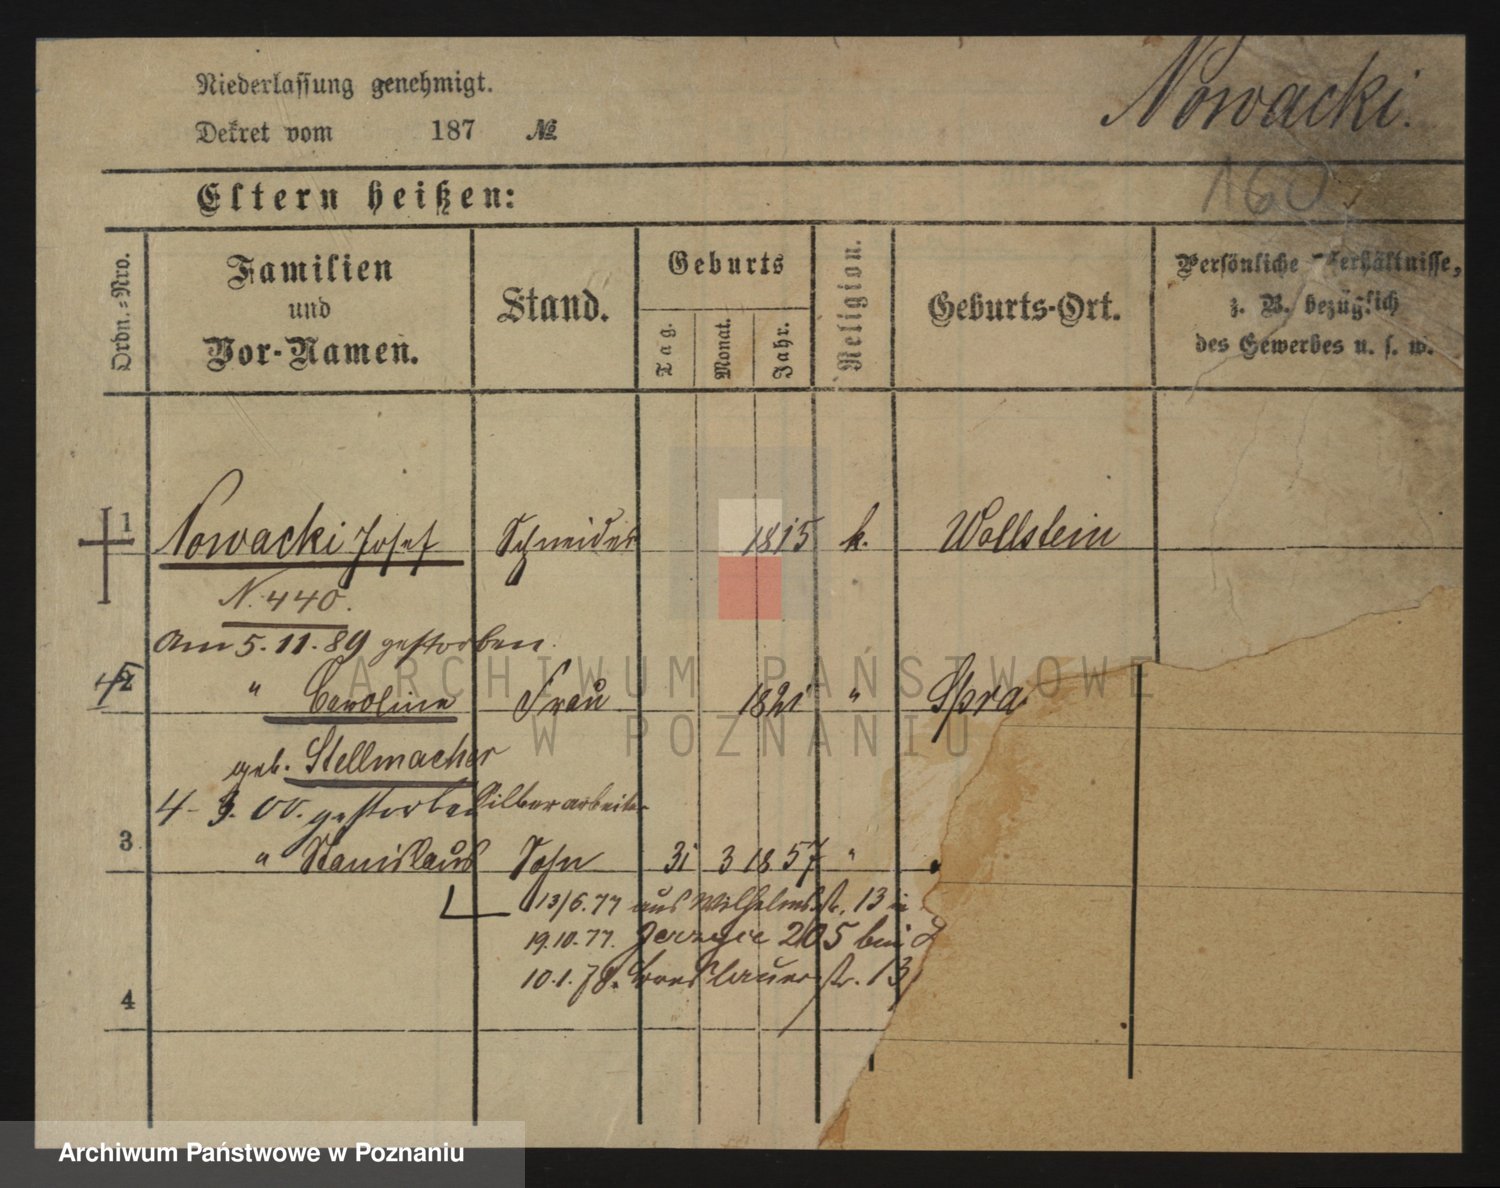 Niederlassung genehmigt.
Dekret vom 187 №
Nowacki.
160
Eltern heißen:
Ordn.-Nro.
Familien
und
Vor-Namen.
Stand.
Geburts
Tag.
Monat.
Jahr.
Religion.
Geburts-Ort.
Persönliche Verhältnisse,
z. B. bezüglich
des Gewerbes u. s. w.
1 Nowacki Josef Schneider 1815 k. Wollstein
N. 440.
Am 5.11.89 gestorben.
2 " Caroline Frau 1821 "
geb. Stellmacher
4. 3. 00. gestorben Silberarbeiter
3 " Stanislaus Sohn 31 3 1857 "
13/6.77 aus Wilhelmsstr. 13 in
19.10.77. Jerzyce 205 bei
10.1.78. Breslauerstr. 13
4
ARCHIWUM PAŃSTWOWE
W POZNANIU
Archiwum Państwowe w Poznaniu